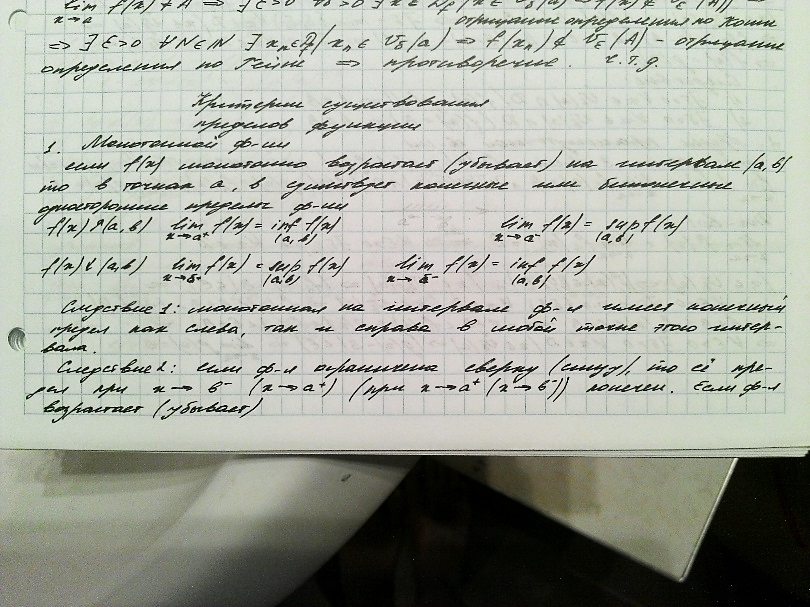 lim f(x) ≠ A => ∃ ε>0 ∀δ>0 ∃ x ∈ D_f (x ∈ U_δ(a) => f(x) ∉ U_ε(A)) =>
x→a отрицание определения по Коши
=> ∃ ε>0 ∀N∈ℕ ∃ x_n∈D_f / x_n ∈ U_δ(a) => f(x_n) ∉ U_ε(A) – отрицание
определения по Гейне => противоречие. ч.т.д.
Критерии существования
пределов функции
1. Монотонной ф-ии
если f(x) монотонно возрастает (убывает) на интервале (a, b)
то в точках a, b существует конечные или бесконечные
односторонние пределы ф-ии
f(x)↑(a, b) lim f(x) = inf f(x) lim f(x) = sup f(x)
x→a⁺ (a, b) x→a⁻ (a, b)
f(x)↓(a, b) lim f(x) = sup f(x) lim f(x) = inf f(x)
(a, b) x→b⁻ (a, b)
Следствие 1: монотонная на интервале ф-я имеет конечный
предел как слева, так и справа в любой точке этого интер-
вала.
Следствие 2: если ф-я ограничена сверху (снизу), то её пре-
дел при x→b⁻ (x→a⁺) (при x→a⁺ (x→b⁻)) конечен. Если ф-я
возрастает (убывает)